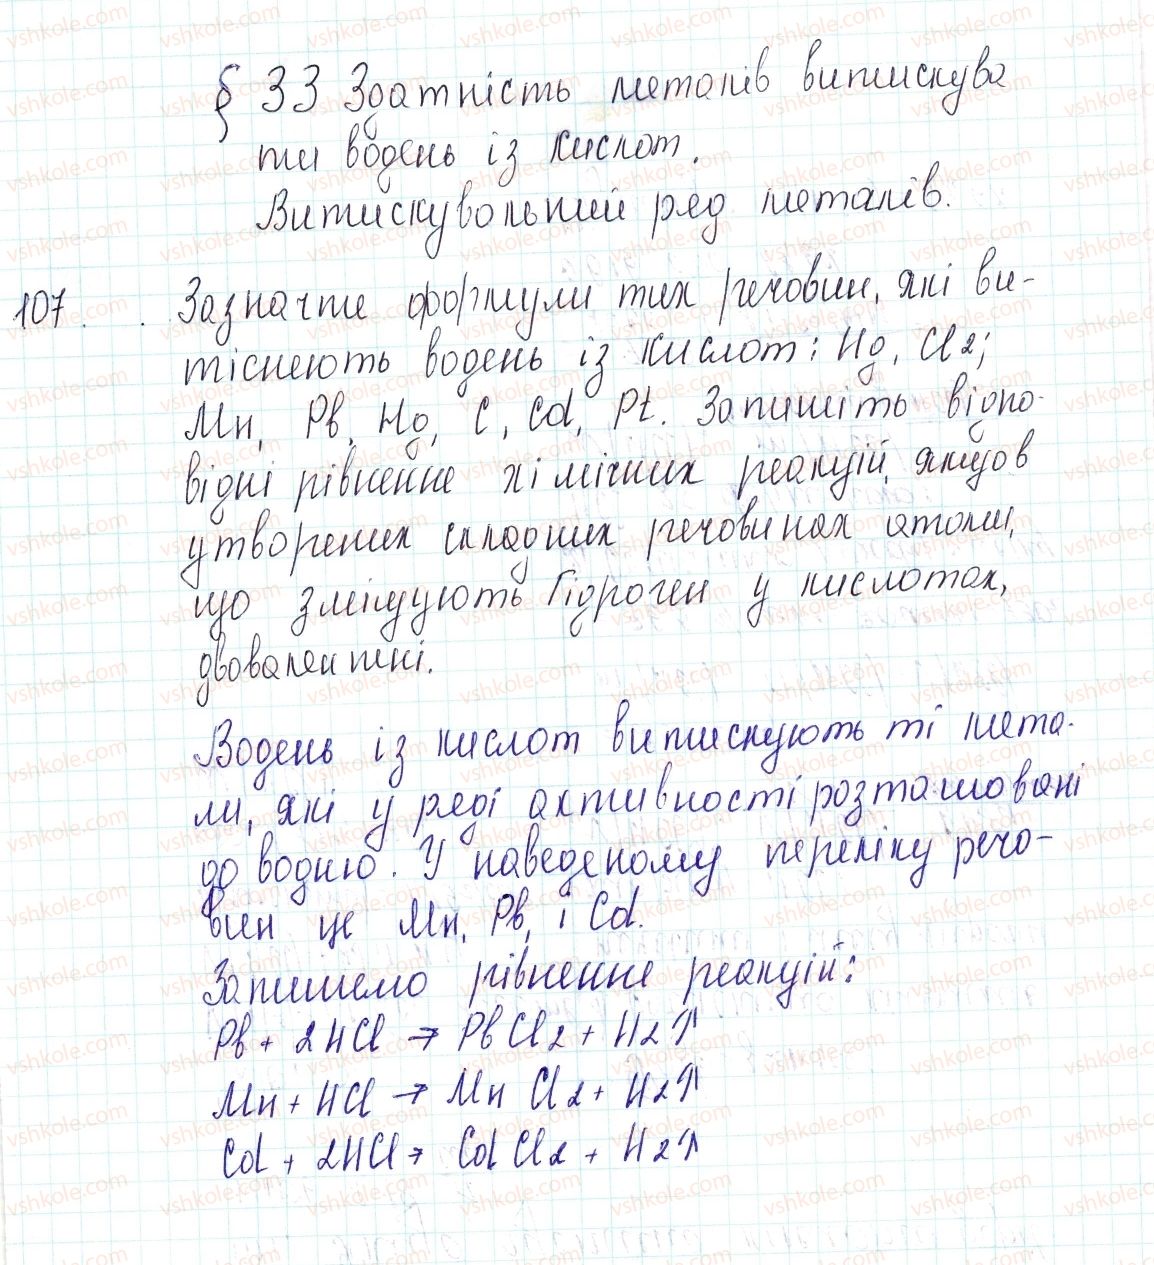 § 33 Здатність металів витискува
ти водень із кислот.
Витискувальний ряд металів.
107. Зазначте формули тих речовин, які ви-
тісняють водень із кислот: Hg, Cl2;
Mn, Pb, Hg, C, Cd, Pt. Запишіть відпо-
відні рівняння хімічних реакцій, якщо в
утворених складних речовинах атоми,
що зміщують Гідроген у кислотах,
двовалентні.
Водень із кислот витискують ті мета-
ли, які у ряді активності розташовані
до водню. У наведеному переліку речо-
вин це Mn, Pb, і Cd.
Запишемо рівняння реакцій:
Pb + 2HCl → PbCl2 + H2↑
Mn + HCl → MnCl2 + H2↑
Cd + 2HCl → CdCl2 + H2↑
vshkole.com